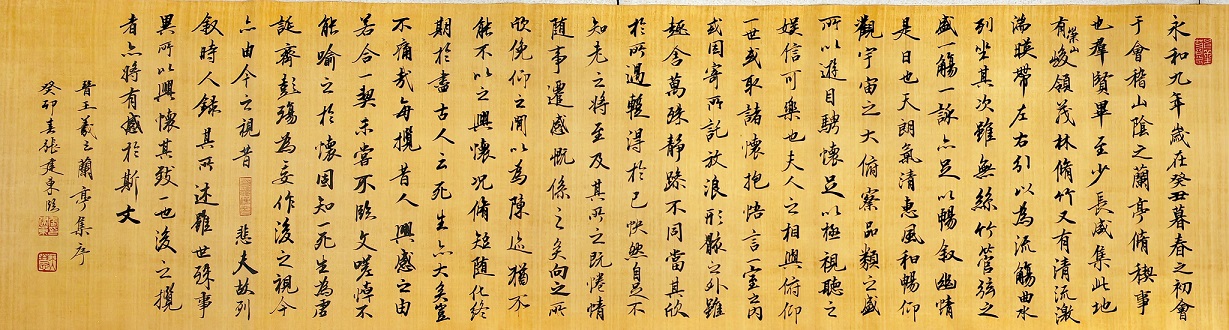 永和九年歲在癸丑暮春之初會
于會稽山陰之蘭亭脩稧事
也羣賢畢至少長咸集此地
有崇山峻領茂林脩竹又有清流激
湍暎帶左右引以為流觴曲水
列坐其次雖無絲竹管弦之
盛一觴一詠亦足以暢叙幽情
是日也天朗氣清惠風和暢仰
觀宇宙之大俯察品類之盛
所以遊目騁懷足以極視聽之
娛信可樂也夫人之相與俯仰
一世或取諸懷抱悟言一室之內
或因寄所託放浪形骸之外雖
趣舍萬殊靜躁不同當其欣
於所遇暫得於己怏然自足不
知老之將至及其所之既惓情
隨事遷感慨係之矣向之所
欣俛仰之間以為陳迹猶不
能不以之興懷況脩短隨化終
期於盡古人云死生亦大矣豈
不痛哉每攬昔人興感之由
若合一契未嘗不臨文嗟悼不
能喻之於懷固知一死生為虛
誕齊彭殤為妄作後之視今
亦由今之視昔 悲夫故列
叙時人錄其所述雖世殊事
異所以興懷其致一也後之攬
者亦將有感於斯文
晉王羲之蘭亭集序
癸卯春張建東臨